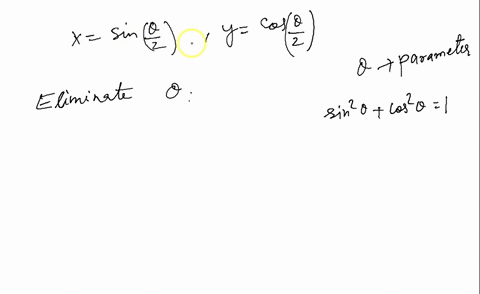 x = sin(θ/2) , y = cos(θ/2)
θ → parameter
Eliminate θ :
sin²θ + cos²θ = 1